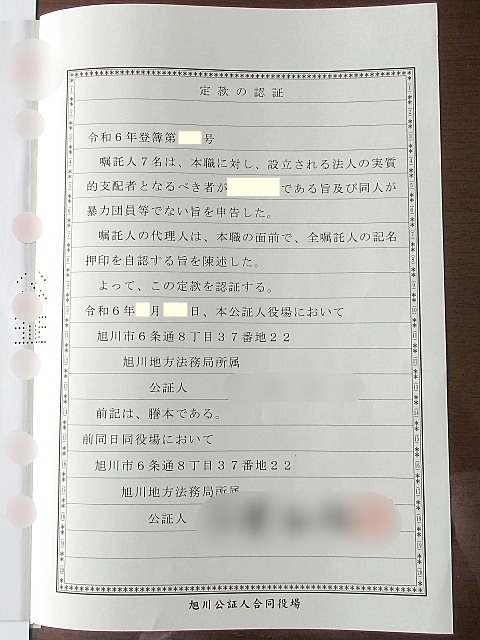 定款の認証
令和６年登簿第 号
嘱託人７名は、本職に対し、設立される法人の実質
的支配者となるべき者が である旨及び同人が
暴力団員等でない旨を申告した。
嘱託人の代理人は、本職の面前で、全嘱託人の記名
押印を自認する旨を陳述した。
よって、この定款を認証する。
令和６年 月 日、本公証人役場において
旭川市６条通８丁目３７番地２２
旭川地方法務局所属
公証人
前記は、謄本である。
前同日同役場において
旭川市６条通８丁目３７番地２２
旭川地方法務局所属
公証人
旭川公証人合同役場